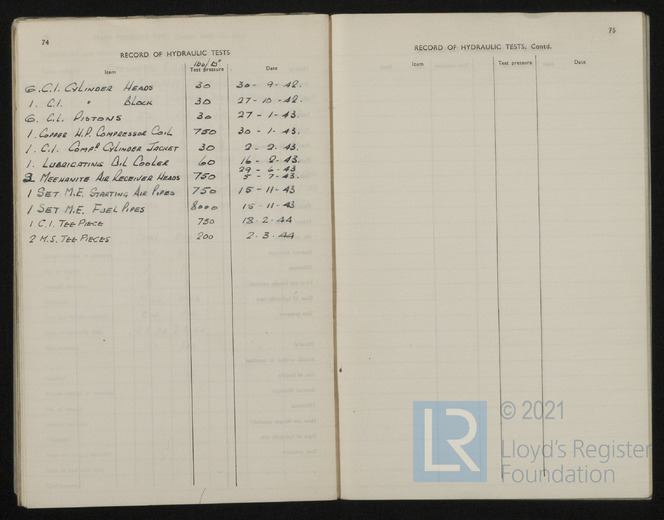 74
RECORD OF HYDRAULIC TESTS
Item lbs/□" Test pressure Date
6. C.I. CYLINDER HEADS 30 30 - 9 - 42.
1. C.I. " BLOCK 30 27 - 10 - 42.
6. C.I. PISTONS 30 27 - 1 - 43.
1. COPPER H.P. COMPRESSOR COIL 750 30 - 1 - 43.
1. C.I. COMPR CYLINDER JACKET 30 2 - 2 - 43.
1. LUBRICATING OIL COOLER 60 16 - 2 - 43.
29 - 6 - 43
MEEHANITE AIR RECEIVER HEADS 750 5 - 7 - 43.
1 SET M.E. STARTING AIR PIPES 750 15 - 11 - 43
1 SET M.E. FUEL PIPES 8000 15 - 11 - 43
1 C.I. TEE PIECE 750 18 . 2 . 44
2 M.S. TEE PIECES 200 2 . 3 . 44
75
RECORD OF HYDRAULIC TESTS, Contd.
Item Test pressure Date
LR © 2021
Lloyd's Register
Foundation